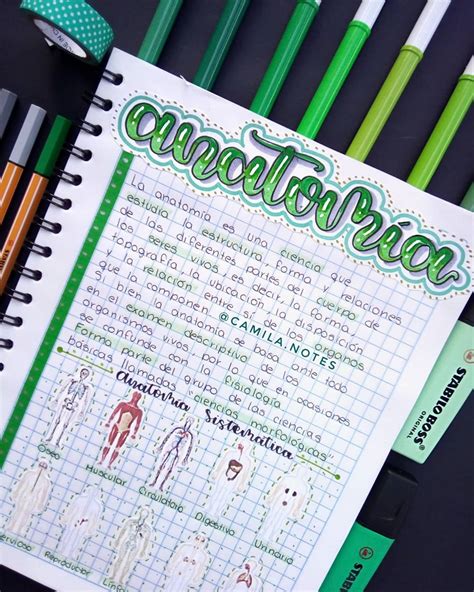 anatomía
La anatomía es una ciencia que
estudia la estructura, forma y relaciones
de las diferentes partes del cuerpo de
los seres vivos, es decir, la forma, la
topografía, la ubicación, la disposición
y la relación entre sí de los órganos
que la componen.
Si bien la anatomía se basa ante todo
en el examen descriptivo de los
organismos vivos por lo que en ocasiones
se confunde con la fisiología
Forma parte del grupo de las ciencias
básicas llamadas "ciencias morfológicas"
@CAMILA.NOTES
anatomía Sistemática
Óseo
Muscular
Circulatorio
Digestivo
Urinario
Nervioso
Reproductor
STABILO BOSS
ORIGINAL
STABILO BOSS